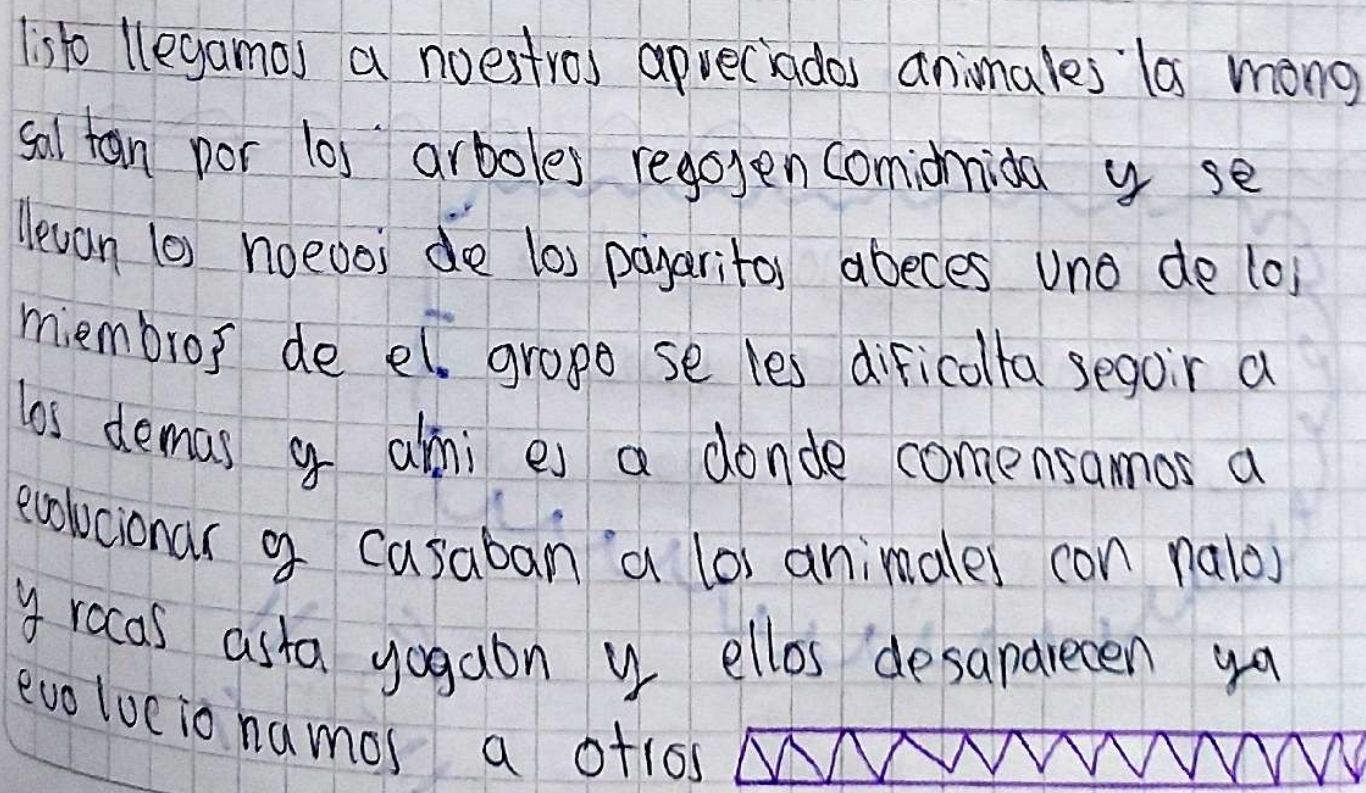 listo llegamos a noestros apreciados animales los mong
sal tan por los arboles regojen comidmida y se
llevan los hoevos de los pajaritos abeces uno de los
miembros de el gropo se les dificolta segoir a
los demas y ahi es a donde comensamos a
evolucionar y casaban a los animales con palos
y rocas asta yogabn y ellos desaparecen ya
evolucionamos a otros